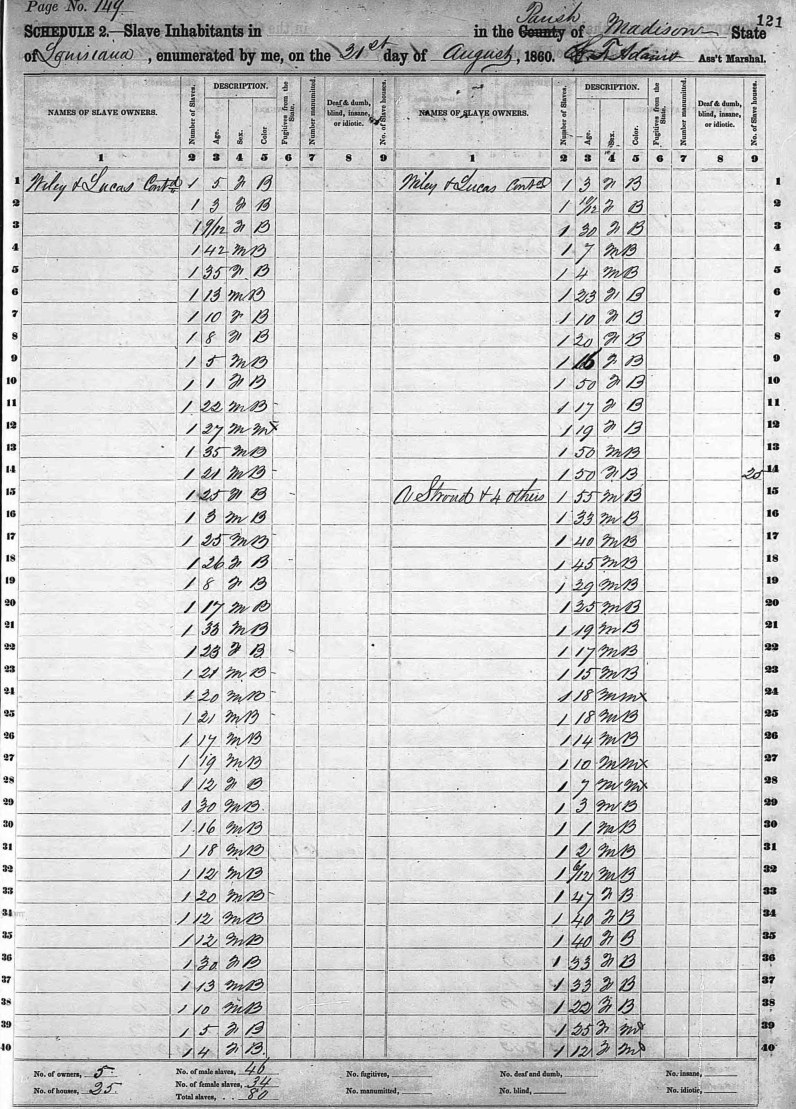 Page No. 149
121
SCHEDULE 2.—Slave Inhabitants in in the County Parish of Madison State
of Louisiana, enumerated by me, on the 21st day of August, 1860. Ass't Marshal.
NAMES OF SLAVE OWNERS. Number of Slaves. DESCRIPTION. Age. Sex. Color. Fugitives from the State. Number manumitted. Deaf & dumb, blind, insane, or idiotic. No. of Slave houses. NAMES OF SLAVE OWNERS. Number of Slaves. DESCRIPTION. Age. Sex. Color. Fugitives from the State. Number manumitted. Deaf & dumb, blind, insane, or idiotic. No. of Slave houses.
1 2 3 4 5 6 7 8 9 1 2 3 4 5 6 7 8 9
1 Wiley & Lucas Contd 1 5 F B Wiley & Lucas Contd 1 3 F B 1
2 1 3 F B 1 10/12 F B 2
3 1 9/12 F B 1 30 F B 3
4 1 42 M B 1 7 M B 4
5 1 35 F B 1 4 M B 5
6 1 13 M B 1 23 F B 6
7 1 10 F B 1 10 F B 7
8 1 8 F B 1 20 F B 8
9 1 5 M B 1 16 F B 9
10 1 1 F B 1 50 F B 10
11 1 22 M B 1 17 F B 11
12 1 27 M Mx 1 19 F B 12
13 1 35 M B 1 50 M B 13
14 1 21 M B 1 50 F B 25 14
15 1 25 F B A Stroud & 4 others 1 55 M B 15
16 1 3 M B 1 33 M B 16
17 1 25 M B 1 40 M B 17
18 1 26 F B 1 45 M B 18
19 1 8 F B 1 29 M B 19
20 1 17 M B 1 25 M B 20
21 1 33 M B 1 19 M B 21
22 1 23 F B 1 17 M B 22
23 1 21 M B 1 15 M B 23
24 1 20 M B 1 18 M Mx 24
25 1 21 M B 1 18 M B 25
26 1 17 M B 1 14 M B 26
27 1 19 M B 1 10 M Mx 27
28 1 12 F B 1 7 M Mx 28
29 1 30 M B 1 3 M B 29
30 1 16 M B 1 1 M B 30
31 1 18 M B 1 2 M B 31
32 1 12 M B 1 6/12 M B 32
33 1 20 M B 1 47 F B 33
34 1 12 M B 1 40 F B 34
35 1 12 M B 1 40 F B 35
36 1 30 F B 1 33 F B 36
37 1 13 M B 1 33 F B 37
38 1 10 M B 1 22 F B 38
39 1 5 F B 1 25 F Mx 39
40 1 4 F B 1 12 F Mx 40
No. of owners, 5 No. of male slaves, 46 No. fugitives, No. deaf and dumb, No. insane,
No. of houses, 25 No. of female slaves, 34 No. manumitted, No. blind, No. idiotic,
Total slaves, 80